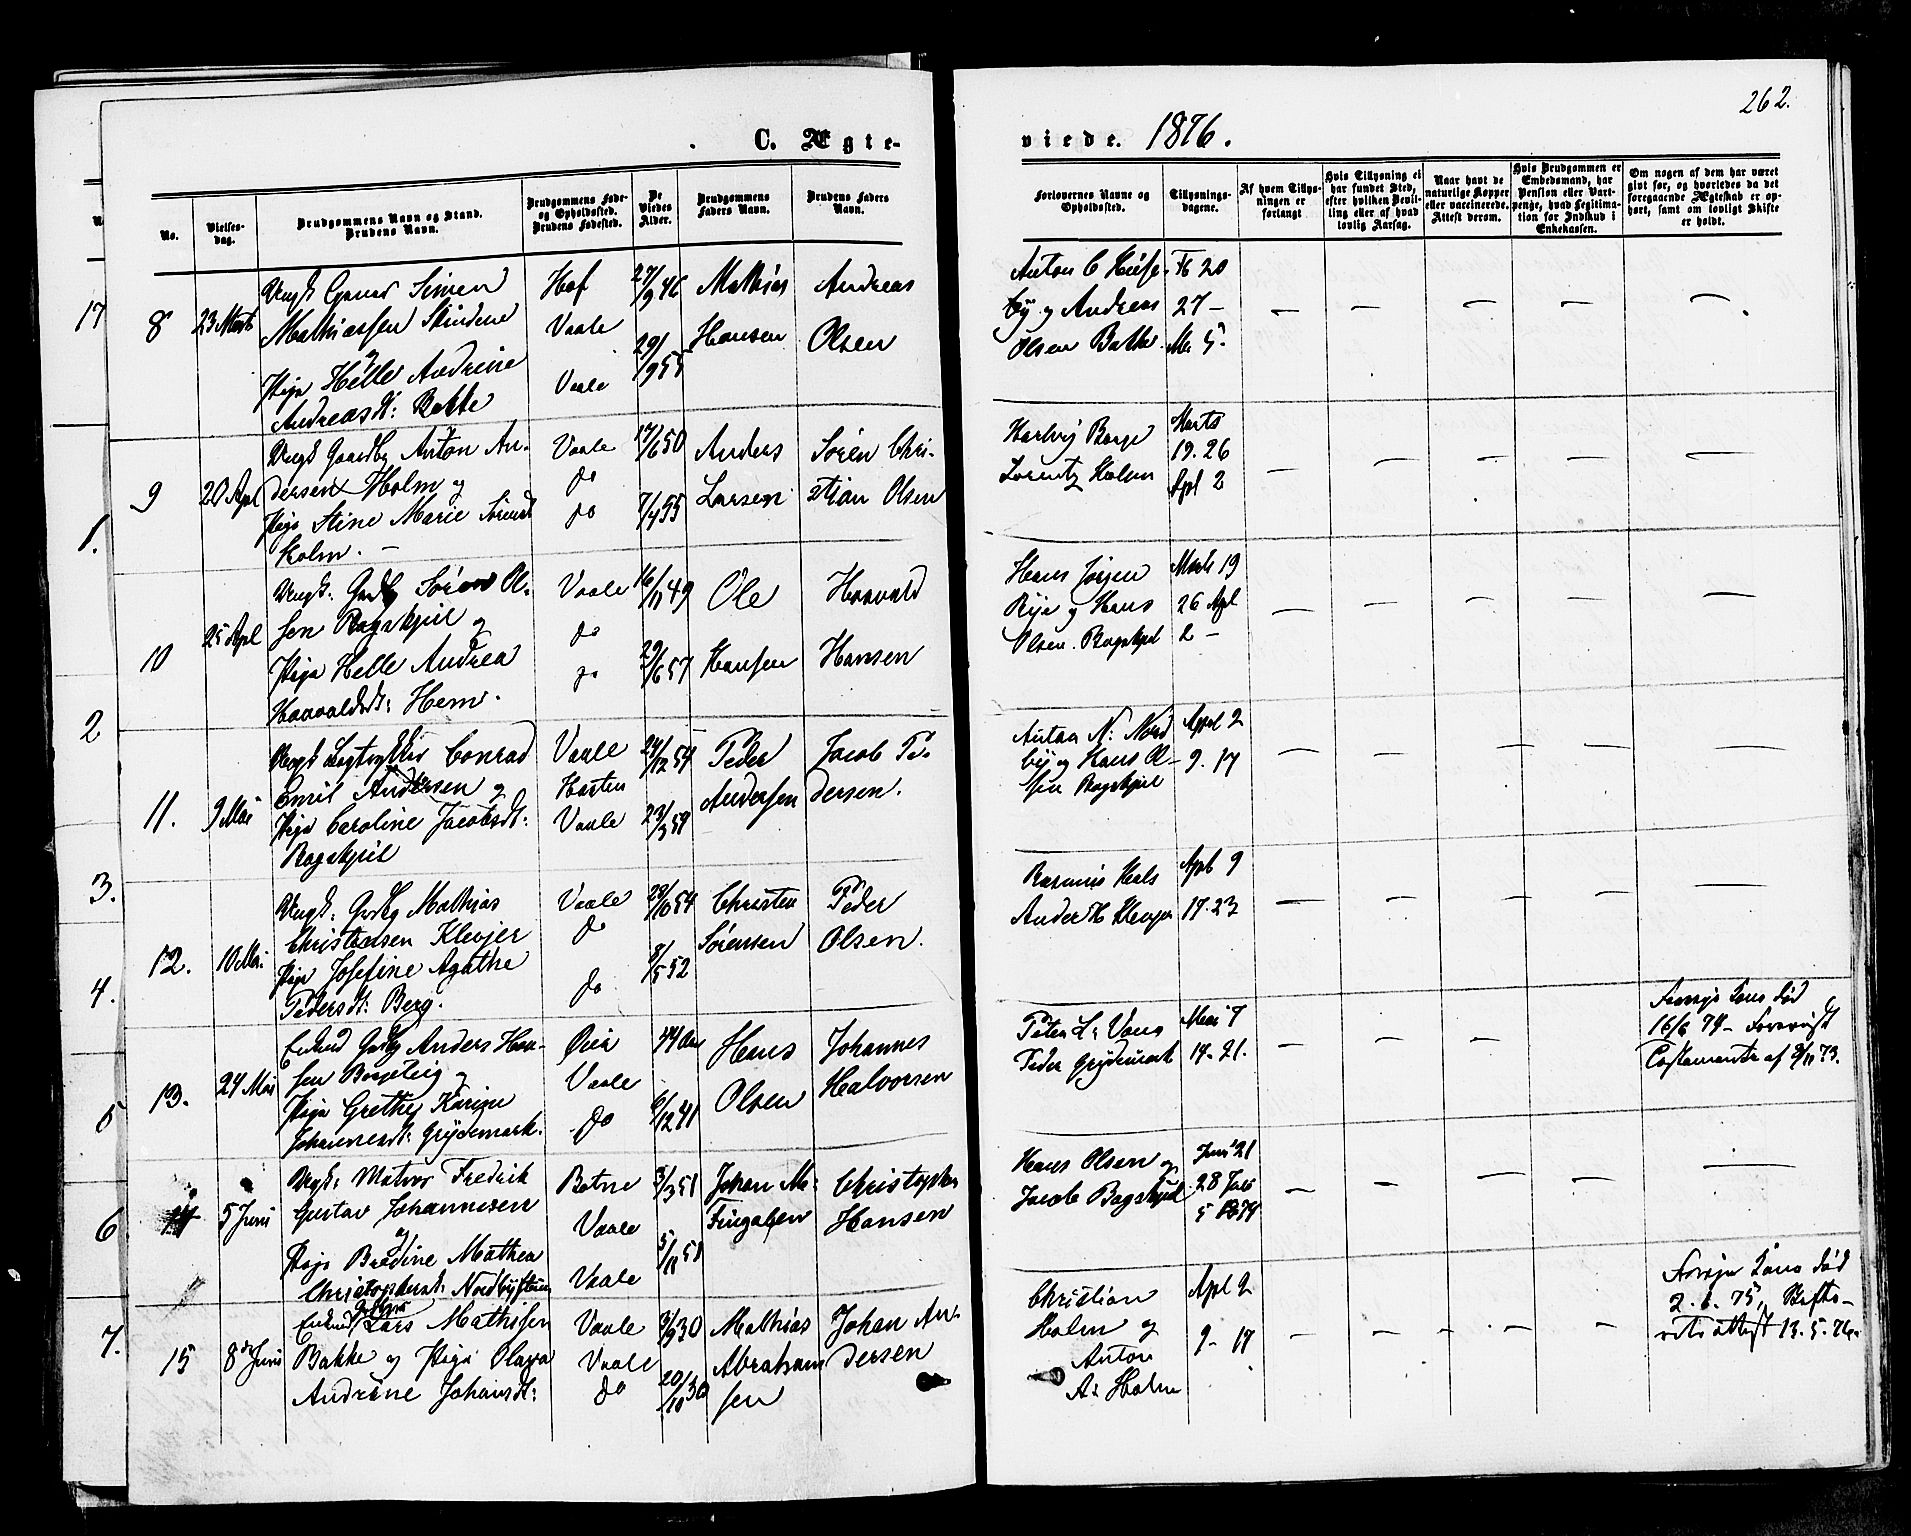 262.
C. Ægte-
viede. 1876.
No.
Vielses-
dag.
Brudgommens Navn og Stand.
Brudens Navn.
Brudgommens Føde-
og Opholdssted.
Brudens Fødested.
De
Viedes
Alder.
Brudgommens
Faders Navn.
Brudens Faders
Navn.
Forlovernes Navne og
Opholdssted.
Tillysnings-
dagene.
Af hvem Tillys-
ningen er
forlangt
Hvis Tillysning ei
har fundet Sted,
efter hvilken Bevil-
ling eller af hvad
lovlig Aarsag.
Naar havt de
naturlige Kopper
eller vaccinerede.
Attest derom.
Hvis Brudgommen er
Embedsmand, har
Pension eller Vart-
penge, hvad Legitima-
tion for Indskud i
Enkekassen.
Om nogen af dem har været
gift før, og hvorledes da det
foregaaende Ægteskab er op-
hørt, samt om lovligt Skifte
er holdt.
17
1.
2
3.
4.
5
6
7.
8 23 Marts
Ungk Simen
Mathiassen
Pige Helle Andrine
Andreasdt: Bakke
Hof
Vaale
Vaale
27/9 46
29/9 55
Mathias
Hansen
Andreas
Olsen
Anton C
by og Andreas
Olsen Bakke
20
27 –
5
9 20 Apl
Ungk Gaardbg Anton An-
dersen Holm og
Pige Stine Marie Sørensdt
Holm. –
Vaale
do
do
17/6 50
7/4 55
Anders
Larsen
Søren Chri-
stian Olsen
Lorentz Holm
Marts
19. 26
Apl 2
10 25 Apl
Ungk: Gdbg Søren Ol-
sen Bagskjeil og
Pige Helle Andrea
Haavaldsdt: Hem.
Vaale
do
do
16/11 49
29/6 57
Ole
Hansen
Haavald
Hansen
Hans Jørgen
Rye og Hans
Olsen. Bagskjeil
Marts 19
26 Apl
2 –
11. 9 Mai
Ungk Conrad
Emil Andersen og
Pige Caroline Jacobsdt:
Bagskjeil
Vaale
Horten
Vaale
24/12 54
Peder
Andersen
Jacob Pe-
dersen.
Anton N: Nord
by og Hans Ol-
sen Bagskjeil
Apl 2
9. 17
12. 10 Mai
Ungk: Gdbg Mathias
Christensen Klevjer
Pige Josefine Agathe
Pedersdt: Berg.
Vaale
do
do
28/10 54
8/5 52
Christen
Sørensen
Peder
Olsen.
Rasmus
Ander H Klevjer
Apl 9
17. 23
13. 24 Mai
Enkmd Gdbg Anders Han-
sen og
Pige Grethe Karine
Johannesdt: Grydemark.
Vaale
do
6/12 41
Hans
Olsen
Johannes
Halvorsen
Peter L:
Peder Grydemark
Mai 7
14. 21.
Forrige Kone død
16/6 74 –
Testamente af 9/11 73.
14 5 Juni
Ungk: Matros Fredrik
Gustav Johannesen
og
Pige Bredine Mathea
Christophersdt:
Botne
Vaale
Vaale
3/3 51
5/11 51
Johan M:
Christopher
Hansen
Hans Olsen og
Jacob Bagskjeil
Juni 21
28
5
15 8de Juni
Enkmd Lars Mathisen
Bakke og Pige Olava
Andrine Johansdt:
Vaale
Vaale
do
3/9 30
20/10 30
Mathias
Abraham-
sen
Johan An-
dersen
Christian
Holm og
Anton
A: Holm
Apl 2
9 – 17
Forrige Kone død
2. 6. 75, Skifte-
rets attest 13. 5. 76.